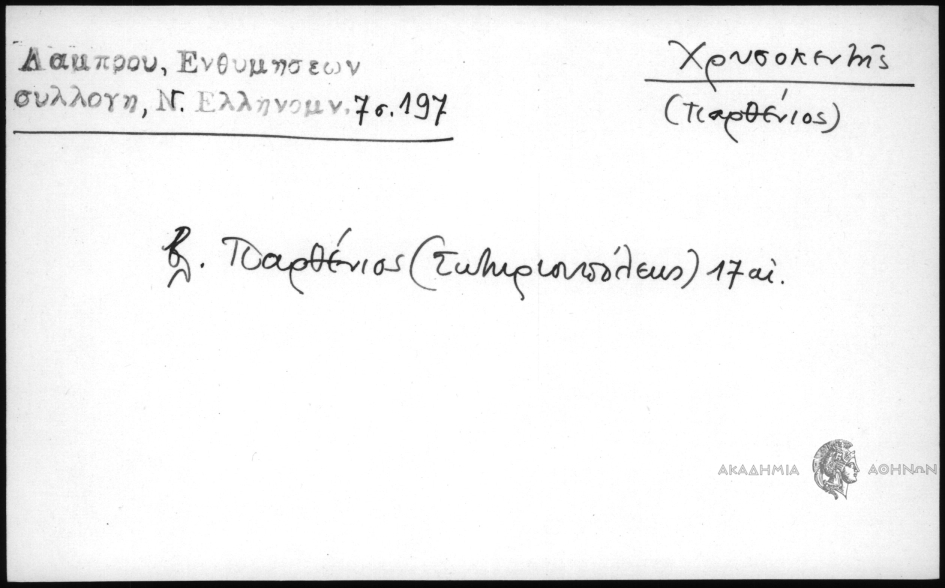 Λαμπρου, Ενθυμησεων
συλλογη, Ν. Ελληνομν. 7 σ. 197
Χρυσοκεντής
(Παρθένιος)
βλ. Παρθένιος (Σωτηριουπόλεως) 17 αἰ.
ΑΚΑΔΗΜΙΑ ΑΘΗΝΩΝ